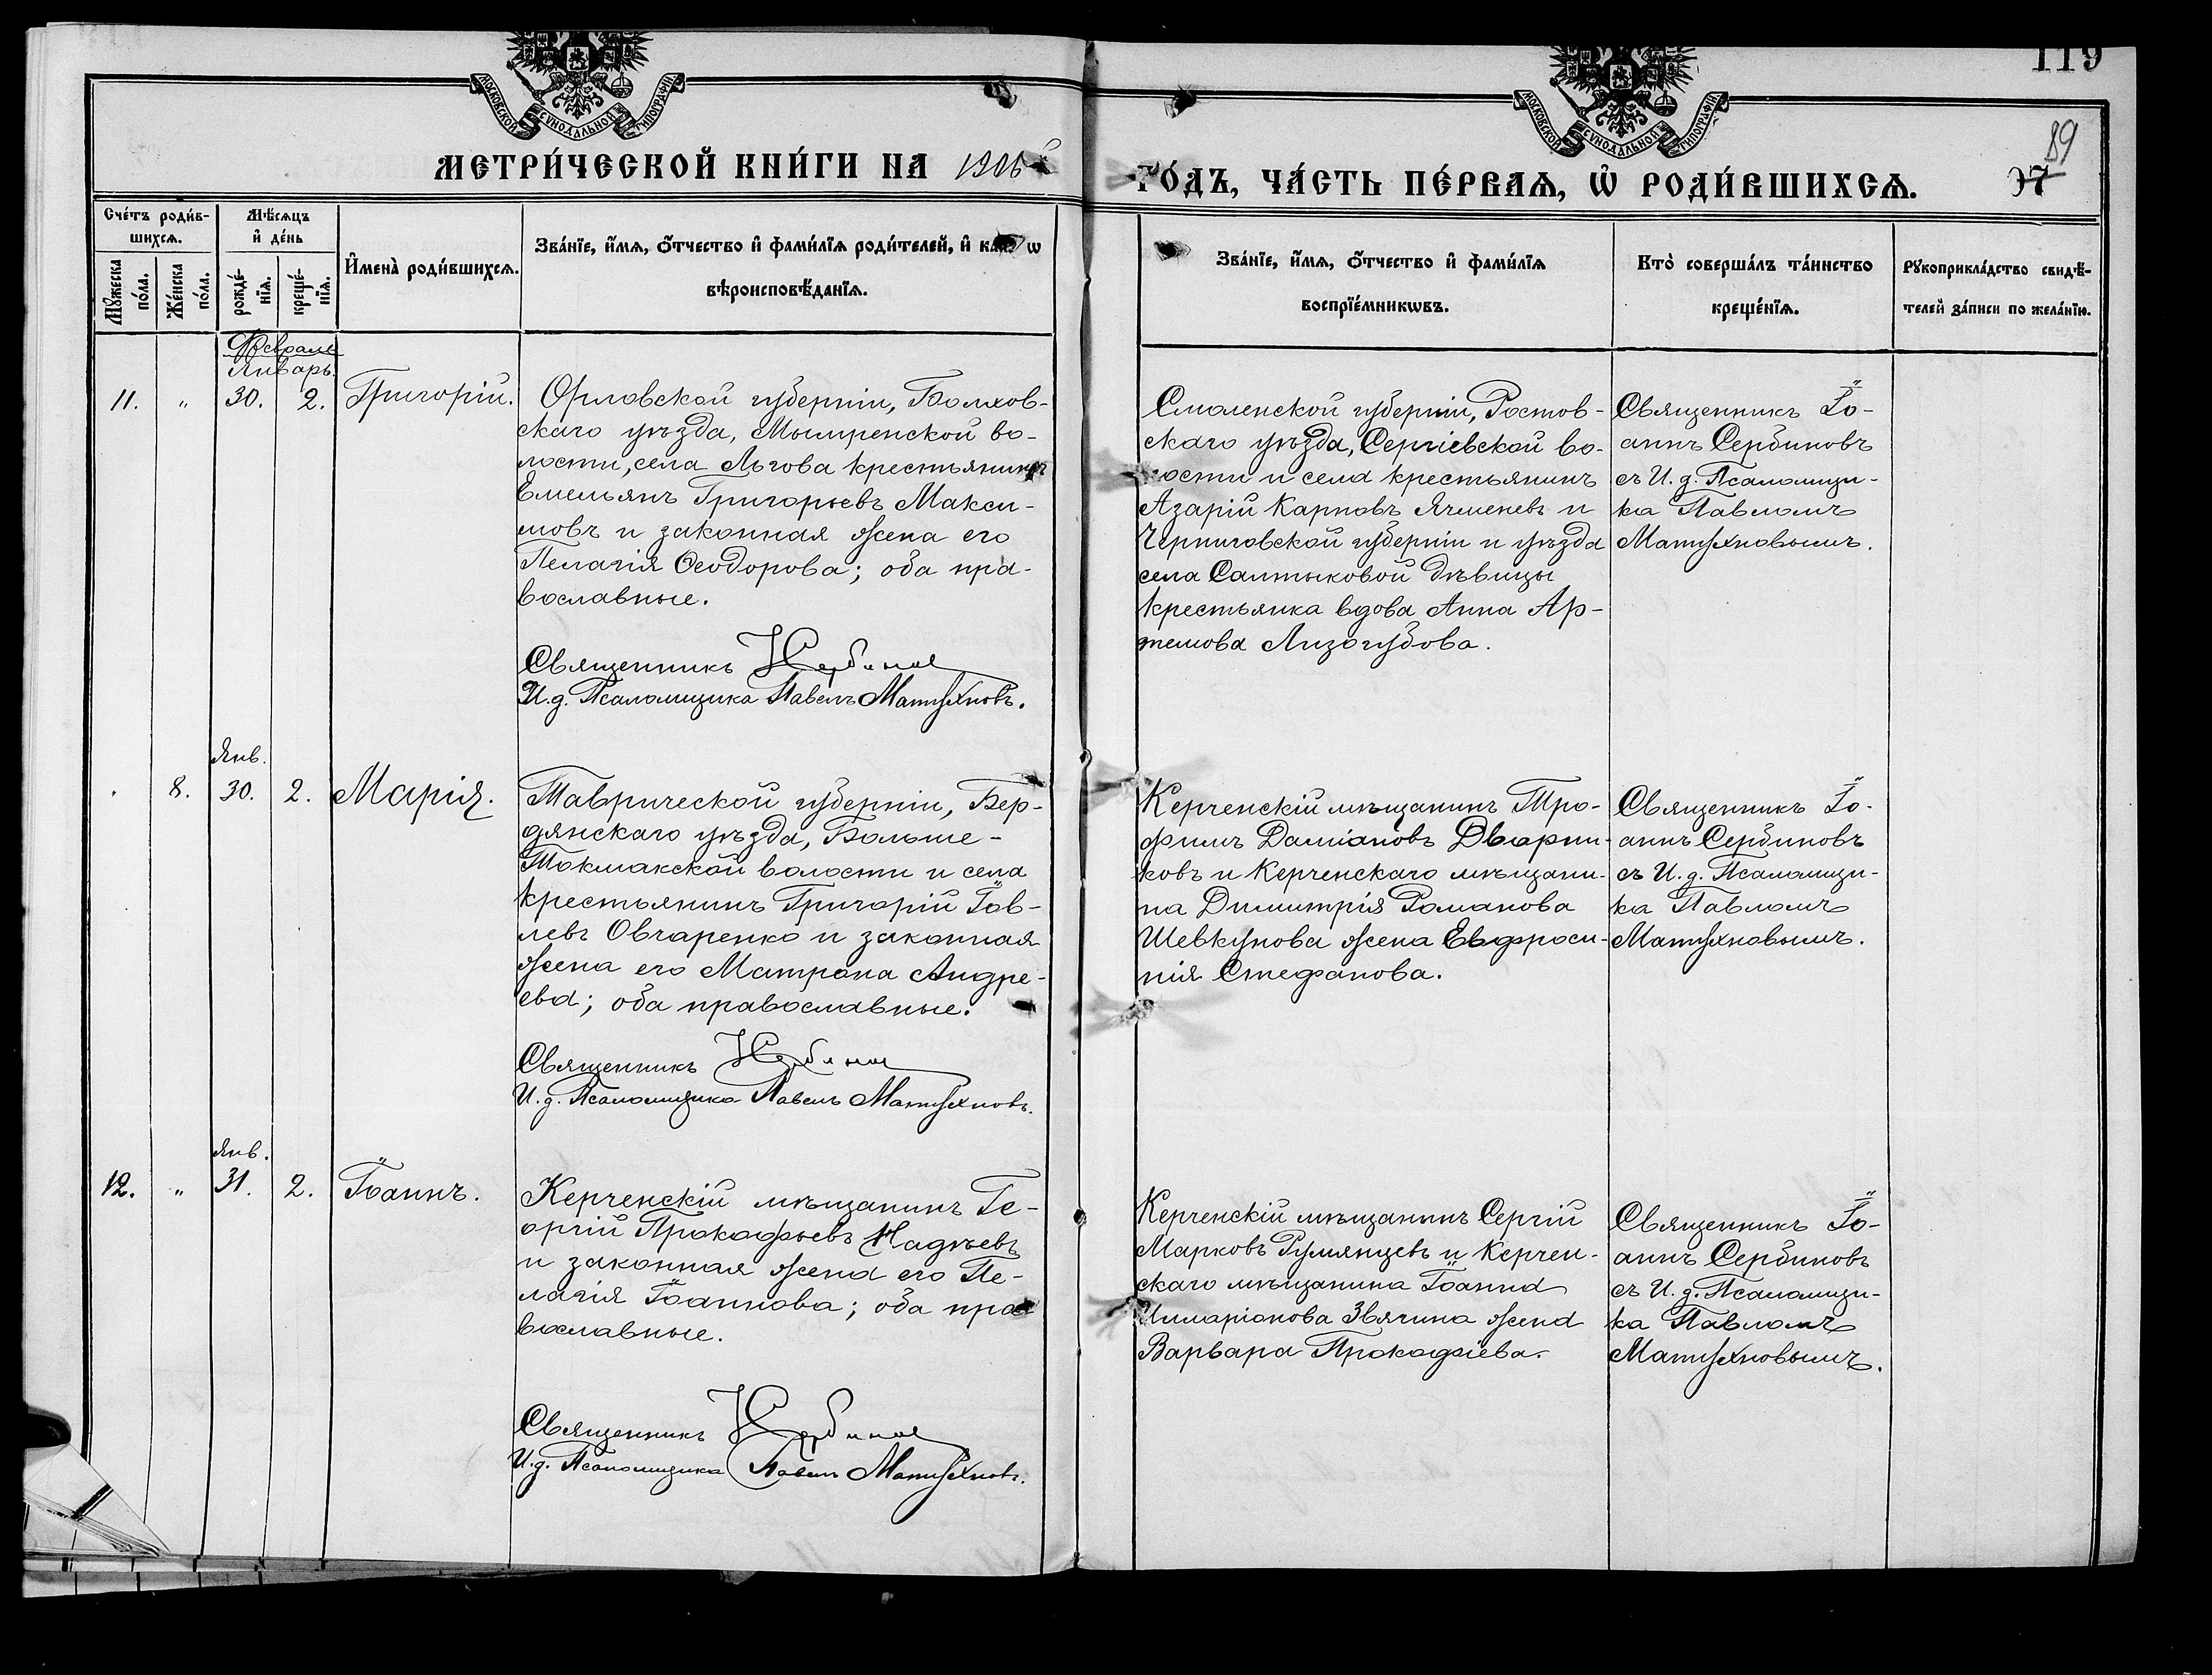 119
МОСКОВСКОЙ СѴНОДАЛЬНОЙ ТИПОГРАФІИ
МОСКОВСКОЙ СѴНОДАЛЬНОЙ ТИПОГРАФІИ
МЕТРИ́ЧЕСКОЙ КНИ́ГИ НА 1906
ГО́ДЪ, ЧА́СТЬ ПЕ́РВАѦ, Ѡ҆ РОДИ́ВШИХСѦ.
89
Сче́тъ роди́в-
шихсѧ.
Мѣ́сѧцъ
и҆ де́нь
Мꙋ́жеска
по́ла.
Же́нска
по́ла.
рожде́-
нїѧ.
креще́-
нїѧ.
И҆мена̀ роди́вшихсѧ.
Зва́нїе, и҆́мѧ, ѻ҆́тчество и҆ фами́лїѧ роди́телей, и҆
вѣроисповѣ́данїѧ.
Зва́нїе, и҆́мѧ, ѻ҆́тчество и҆ фами́лїѧ
воспрїе́мникѡвъ.
Кто̀ соверша́лъ та́инство
креще́нїѧ.
Рꙋкоприкла́дство свидѣ́-
телей за́писи по жела́нїю.
Февраль
Январь.
11. " 30. 2. Григорій.
Орловской губерніи, Болхов-
скаго уѣзда, Мымренской во-
лости, села Льгова крестьянинъ
Емельянъ Григорьевъ Макси-
мовъ и законная жена его
Пелагія Ѳеодорова; оба пра-
вославные.
Священникъ Сербиновъ
И. д. Псаломщика Павелъ Матухновъ.
Смоленской губерніи, Ростов-
скаго уѣзда, Сергіевской во-
лости и села крестьянинъ
Азарій Карповъ Ячменевъ и
Черниговской губерніи и уѣзда
села Салтыковой Дѣвицы
крестьянка вдова Анна Ар-
темова Лизогубова.
Священникъ Іо-
аннъ Сербиновъ
съ И. д. Псаломщи-
ка Павломъ
Матухновымъ.
Янв.
8. 30. 2. Марія.
Таврической губерніи, Бер-
дянскаго уѣзда, Больше-
Токмакской волости и села
крестьянинъ Григорій Іов-
левъ Овчаренко и законная
жена его Матрона Андре-
ева; оба православные.
Священникъ Сербиновъ
И. д. Псаломщика Павелъ Матухновъ.
Керченскій мѣщанинъ Тро-
фимъ Даміановъ Дворни-
ковъ и Керченскаго мѣщани-
на Димитрія Романова
Шевкунова жена Евфроси-
нія Стефанова.
Священникъ Іо-
аннъ Сербиновъ
съ И. д. Псаломщи-
ка Павломъ
Матухновымъ.
Янв.
12. " 31. 2. Іоаннъ.
Керченскій мѣщанинъ Ге-
оргій Прокофьевъ Чадѣевъ
и законная жена его Пе-
лагія Іоаннова; оба пра-
вославные.
Священникъ Сербиновъ
И. д. Псаломщика Павелъ Матухновъ.
Керченскій мѣщанинъ Сергій
Марковъ Румянцевъ и Керчен-
скаго мѣщанина Іоанна
Илларіонова Звягина жена
Варвара Прокофіева.
Священникъ Іо-
аннъ Сербиновъ
съ И. д. Псаломщи-
ка Павломъ
Матухновымъ.